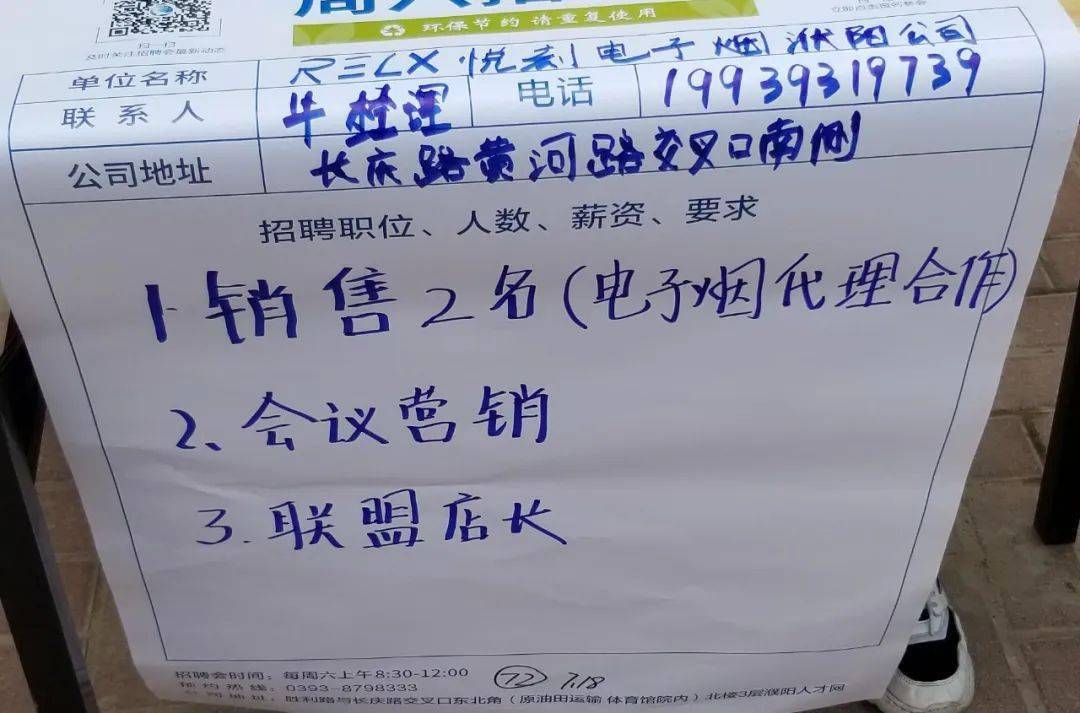 扫一扫
及时关注招聘会最新动态
环保节约 请重复使用
单位名称 RELX 悦刻电子烟濮阳公司
联系人 牛经理 电话 19939319739
公司地址 长庆路黄河路交叉口南侧
招聘职位、人数、薪资、要求
1.销售2名(电子烟代理合作)
2、会议营销
3.联盟店长
招聘会时间：每周六上午8:30-12:00 72 7.18
预约热线：0393-8798333
地址：胜利路与长庆路交叉口东北角（原油田运输 体育馆院内）北楼3层濮阳人才网